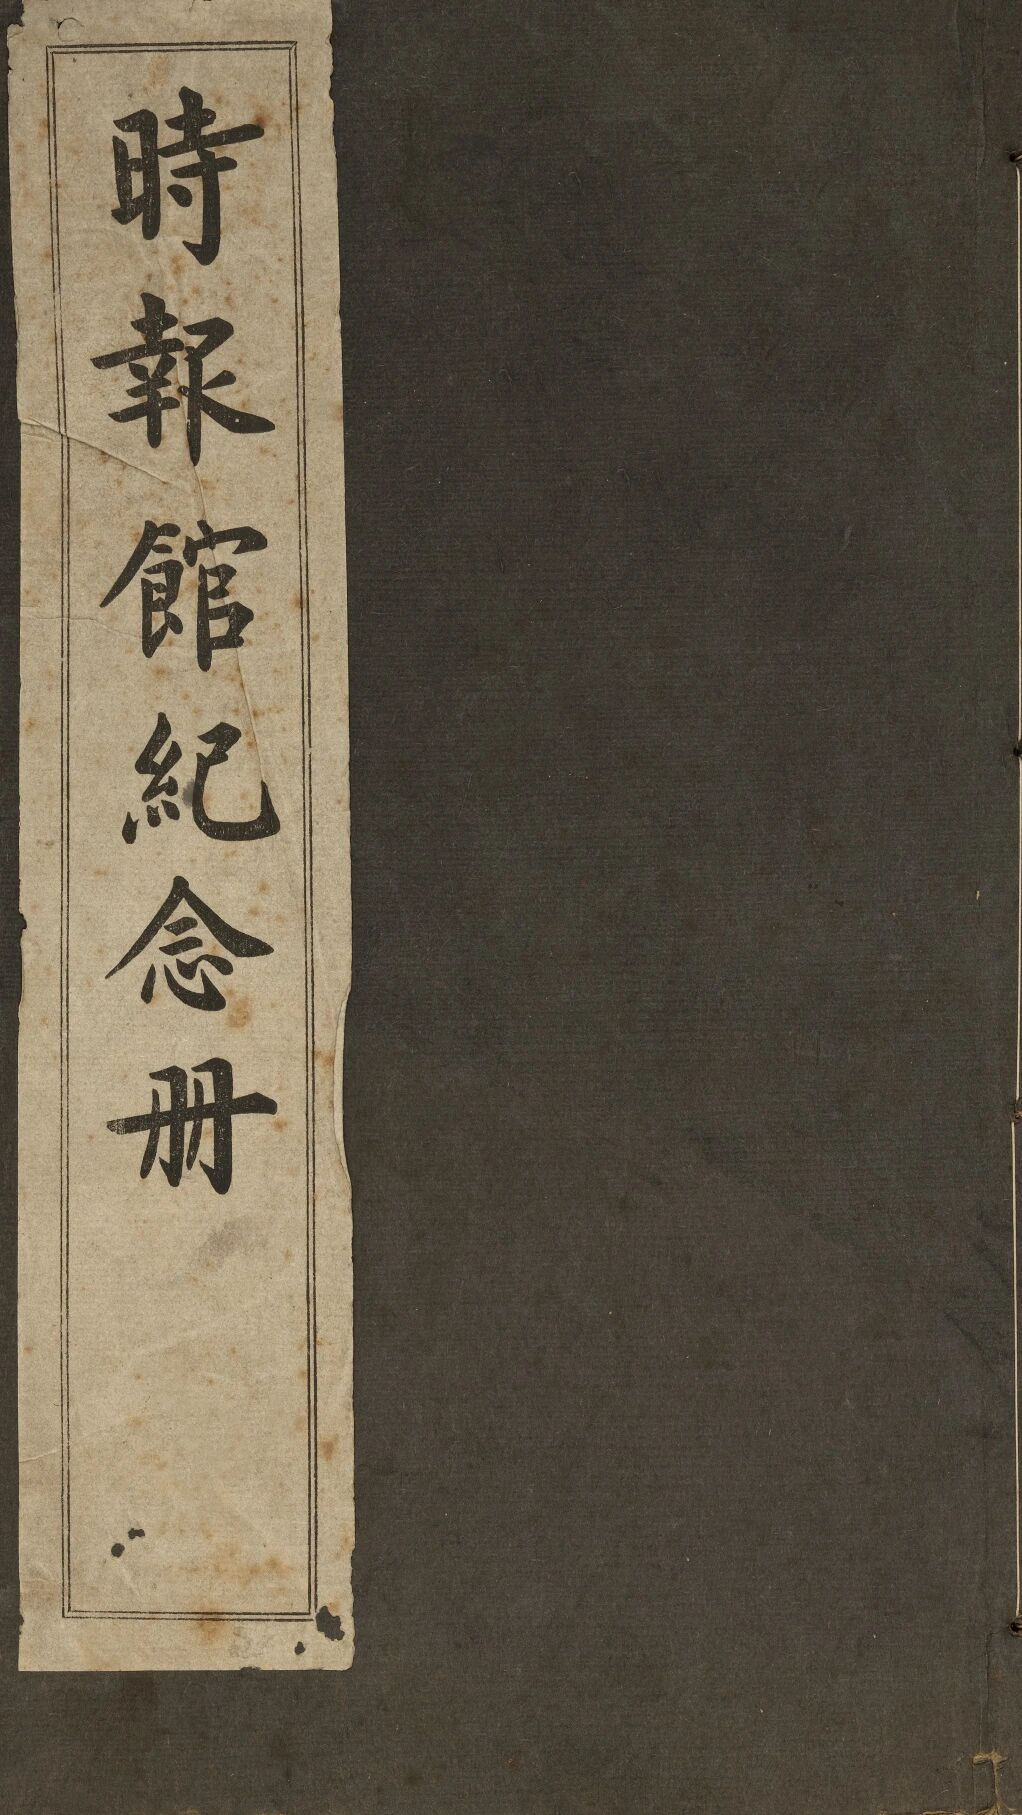 時報館紀念冊